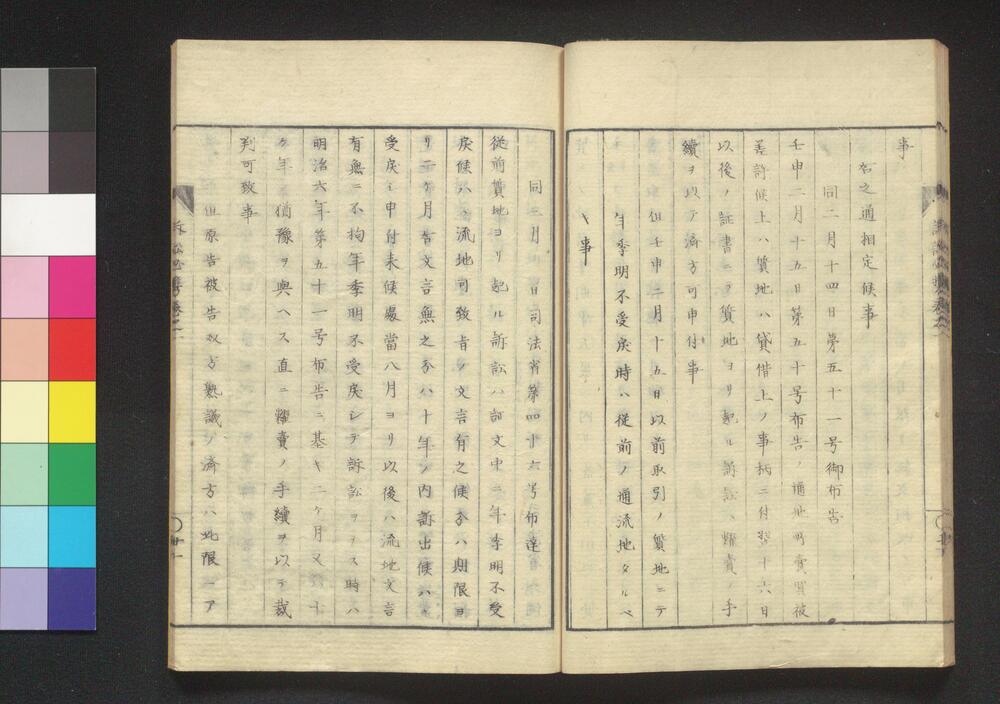 事
右之通相定候事
同二月十四日第五十一号御布告
壬申二月十五日第五十号布告ノ通地所賣買被
差許候上ハ質地ハ貸借上ノ事柄ニ付翌十六日
以後ノ証書ニテ質地ヨリ起ル訴訟ハ糶賣ノ手
續ヲ以テ済方可申付事
但壬申二月十五日以前取引ノ質地ニテ
年季明不受戻時ハ従前ノ通流地タルベ
事
同三月 日司法省第四十六号布達
従前質地ヨリ起ル訴訟ハ証文中ニ年季明不受
戻候ハヽ流地可致者ノ文言有之候分ハ期限ヨ
リ二ケ月右文言無之分ハ十年ノ内訴出候ハヽ
受戻シ申付来候處當八月ヨリ以後ハ流地文言
有無ニ不拘年季明不受戻シテ訴訟ヲナス時ハ
明治六年第五十一号布告ニ基キ二ケ月又ハ十
ケ年ノ猶豫ヲ與ヘス直ニ糶賣ノ手續ヲ以テ裁
判可致事
但原告被告双方熟議ノ済方ハ此限ニア